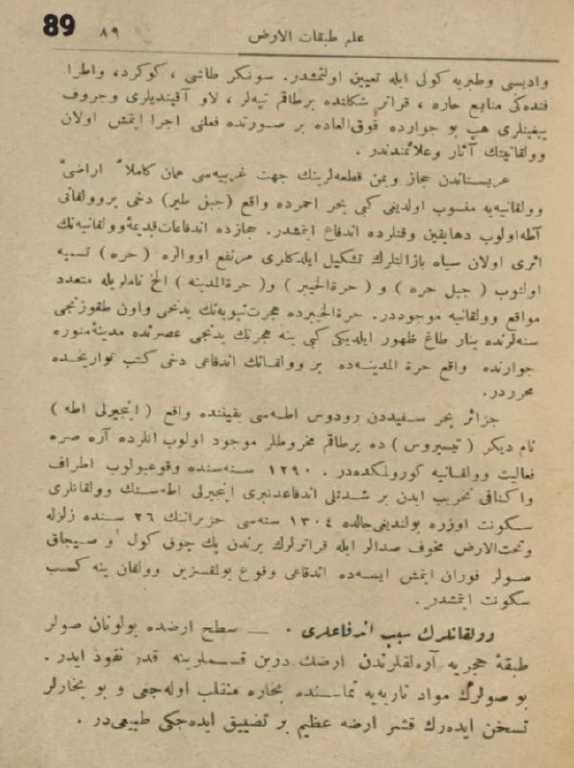 89
٨٩ علم طبقات الارض
واديسى وطبريه كولى ايله تعيين اولنمشدر. سونكر طاشى ، كوكرد، واطرا
فنده‌كى منابع حاره ، قراتر شكلنده برطاقم تپه‌لر ، لاو آقينديلرى وجروف
ييغينلرى هپ بو جوارده فوق‌العاده بر صورتده فعلنى اجرا ايتمش اولان
وولقانيتك آثار وعلائمندندر .
عربستاندن حجاز ويمن قطعه‌لرينك جهت غربيه‌سى همان كاملاً اراضىٔ
وولقانيه‌يه منسوب اولديغى كبى بحر احمرده واقع (جبل طير) دخى بروولقانى
آطه‌اولوب دهايقين وقتلرده اندفاع ايتمشدر. حجازده اندفاعات‌قديمهٔ‌وولقانيه‌نك
اثرى اولان سياه بازالتلرك تشكيل ايلدكلرى مرتفع اووالره ( حره ) تسميه
اولنوب ( جبل حره ) و ( حرة‌الخيبر ) و( حرة‌المدينه ) الخ ناملريله متعدد
مواقع وولقانيه موجوددر. حرة‌الخيبرده هجرت‌نبويه‌نك يدنجى واون طقوزنجى
سنه‌لرنده ينار طاغ ظهور ايلديكى كبى ينه هجرتك يدنجى عصرنده مدينهٔ‌منوره
جوارنده واقع حرة المدينه‌ده بر وولقانك اندفاعى دخى كتب تواريخده
محرردر.
جزائر بحر سفيددن رودوس اطه‌سى يقيننده واقع ( اينجيرلى اطه )
نام ديكر ( نيسيروس ) ده برطاقم مخروطلر موجود اولوب انلرده آره صره
فعاليت وولقانيه كورولمكده‌در . ١٢٩٠ سنه‌سنده وقوعبولوب اطراف
واكنافى تخريب ايدن بر شدتلى اندفاعدنبرى اينجيرلى اطه‌سنك وولقانلرى
سكونت اوزره بولنديغى‌حالده ١٣٠٤ سنه‌سى حزيراننك ٢٦ سنده زلزله
وتحت‌الارض مخوف صدالر ايله قراترلرك برندن پك چوق كول و صيجاق
صولر فوران ايتمش ايسه‌ده اندفاعى وقوع بولقسزين وولقان ينه كسب
سكونت ايتمشدر .
وولقانلرك سبب اندفاعلرى . — سطح ارضده بولونان صولر
طبقهٔ حجريه آره‌لقلرندن ارضك درين قسملرينه قدر نفوذ ايدر .
بو صولرك مواد ناريه‌يه تماسنده بخاره منقلب اوله‌جغى و بو بخارلر
تسخن ايده‌رك قشر ارضه عظيم بر تضييق ايده‌جكى طبيعى‌در .